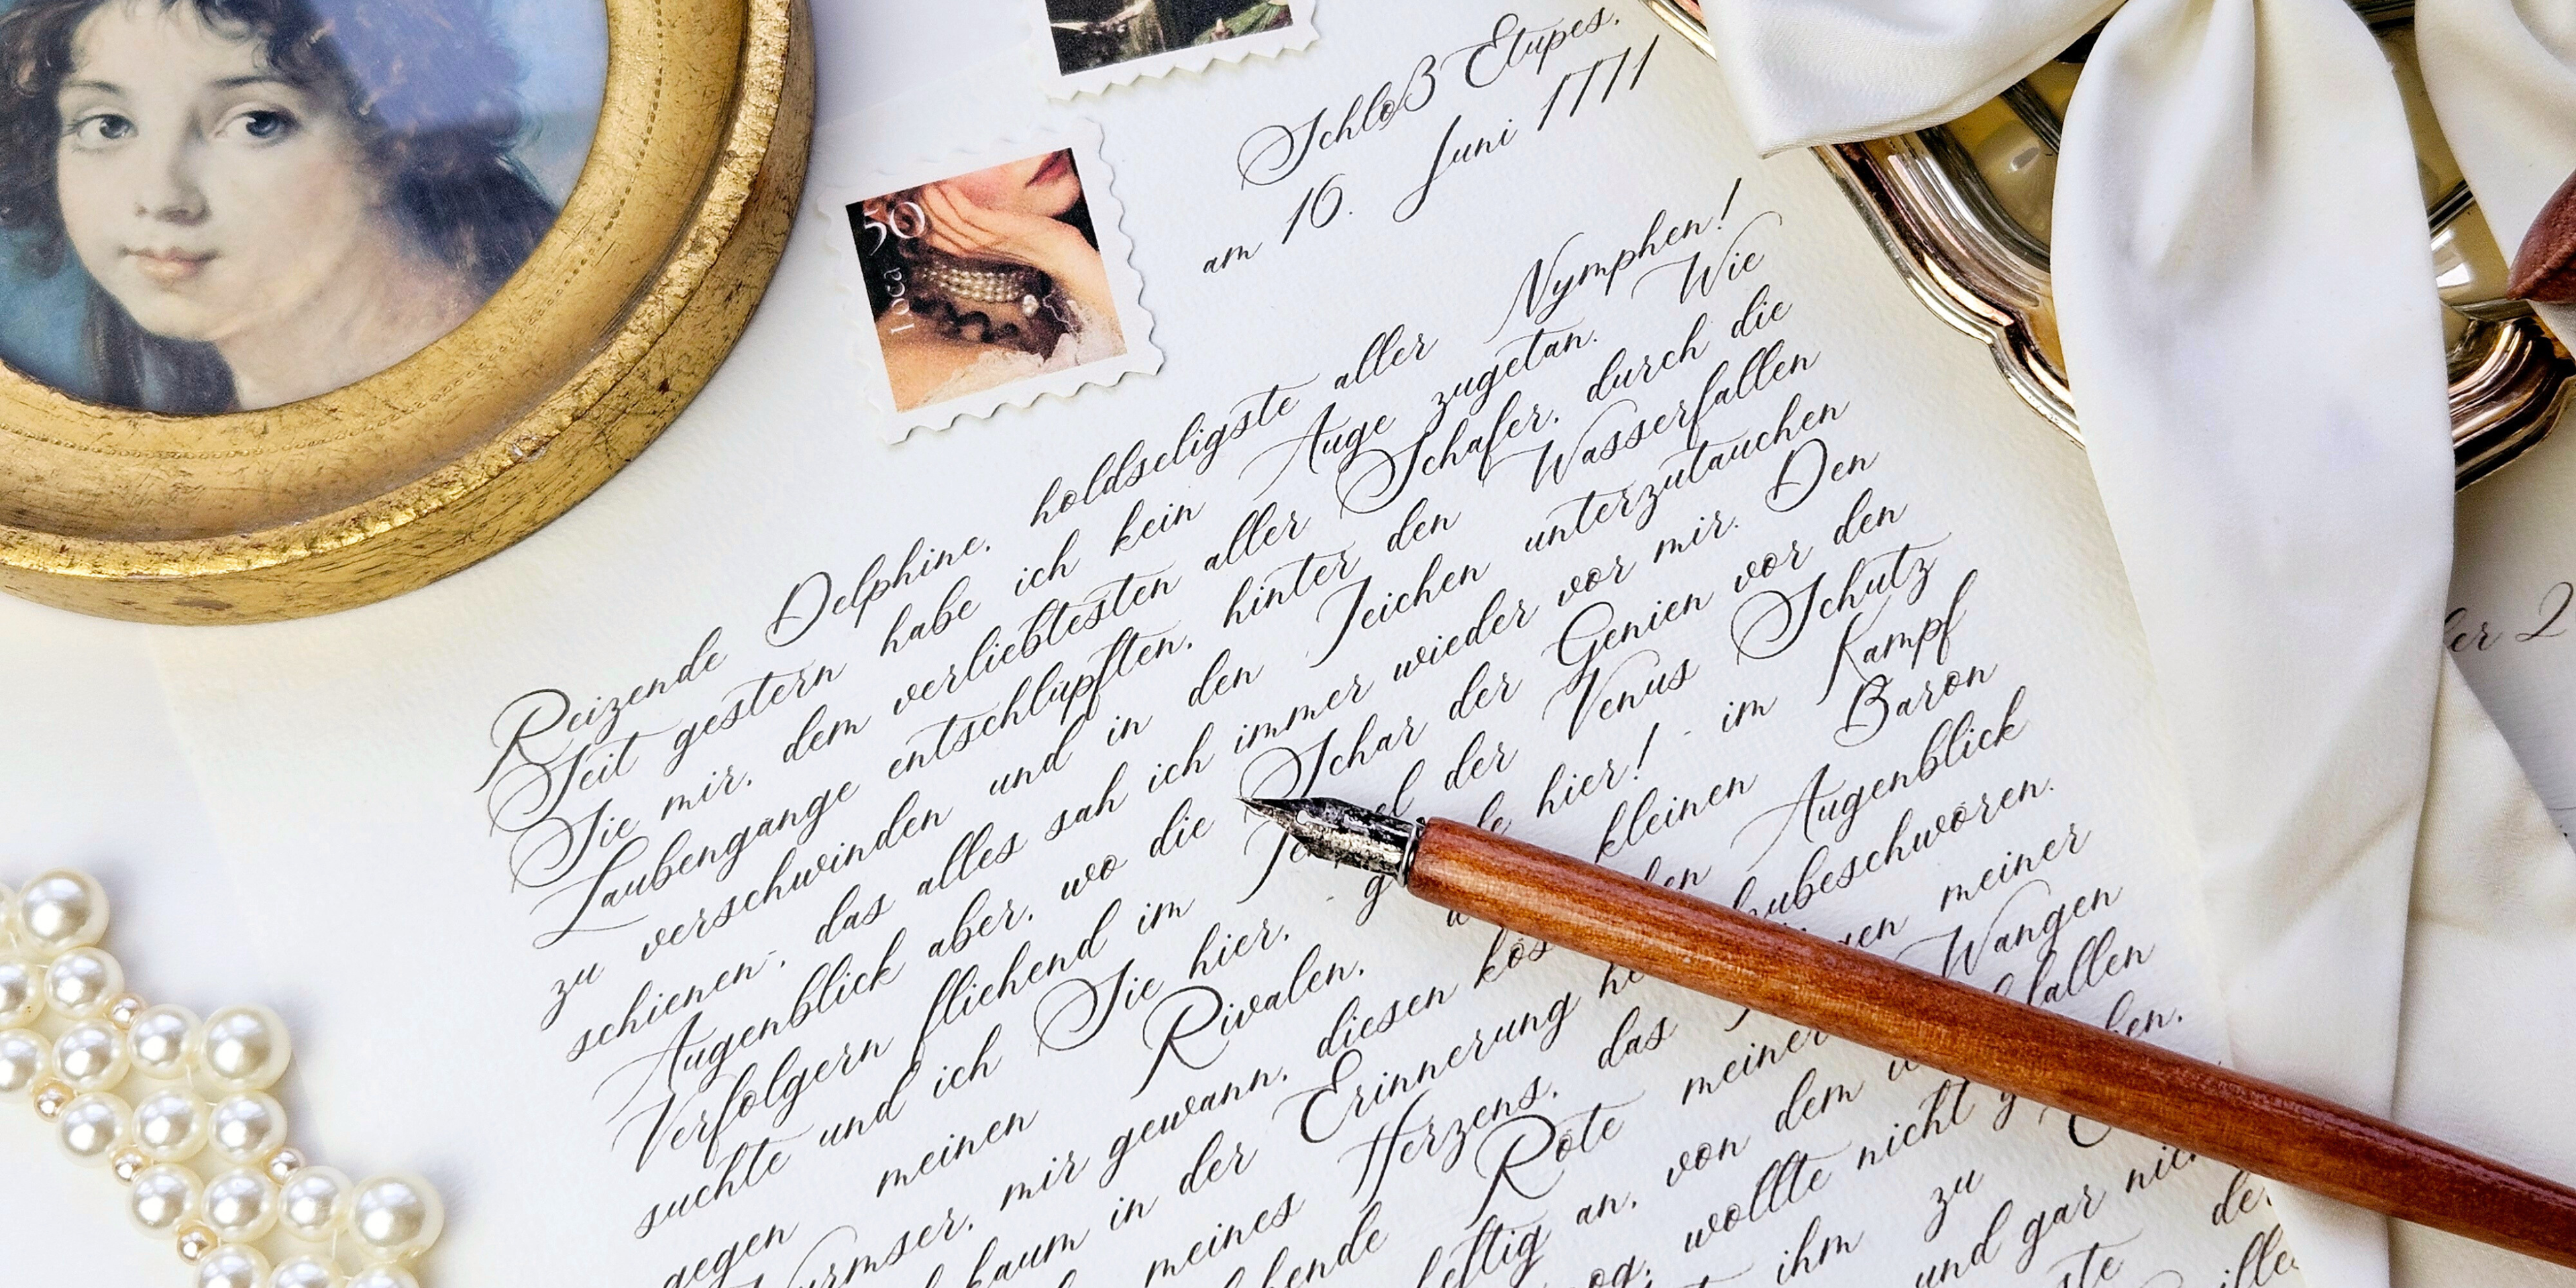 Schloß Etupes,
am 16. Juni 1771
50
1002
Reizende Delphine, holdseligste aller Nymphen!
Seit gestern habe ich kein Auge zugetan. Wie
Sie mir, dem verliebtesten aller Schafer, durch die
Laubengange entschlüpften, hinter den Wasserfallen
zu verschwinden und in den Teichen unterzutauchen
schienen-, das alles sah ich immer wieder vor mir. Den
Augenblick aber, wo die Schar der Genien vor den
Verfolgern fliehend im der Venus Schutz
suchte und ich Sie hier, - hier! - im Kampf
gegen meinen Rivalen, kleinen Baron
mir gewann, diesen Augenblick
kaum in der Erinnerung
meines Herzens, das meiner
Rote meiner Wangen
heftig an, von dem fallen
wollte nicht
ihm zu
und gar